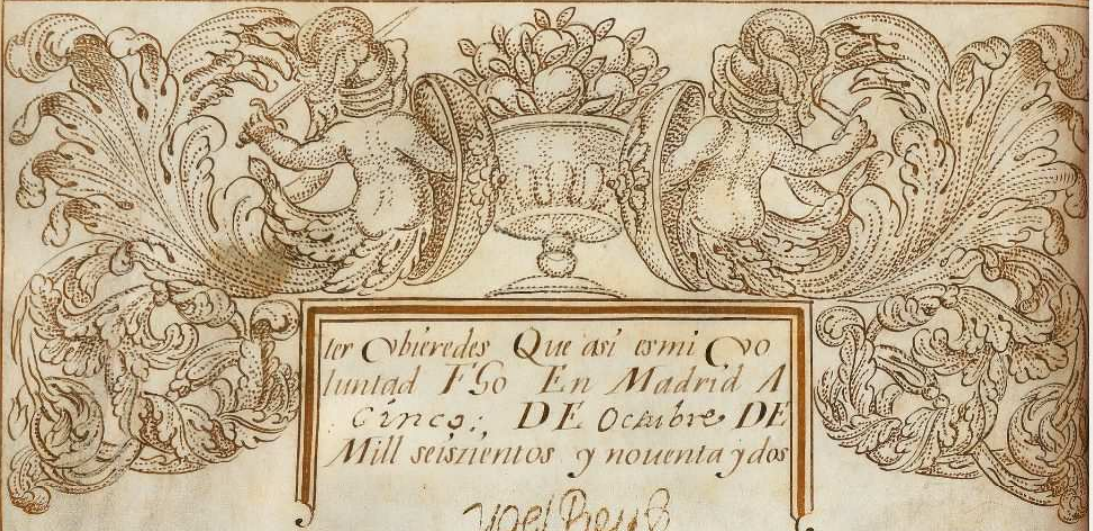 ter Vbieredes Que asi es mi Vo
luntad FHo En Madrid A
Cinco: DE Octubre DE
Mill seiszientos y nouenta y dos
yo el Rey